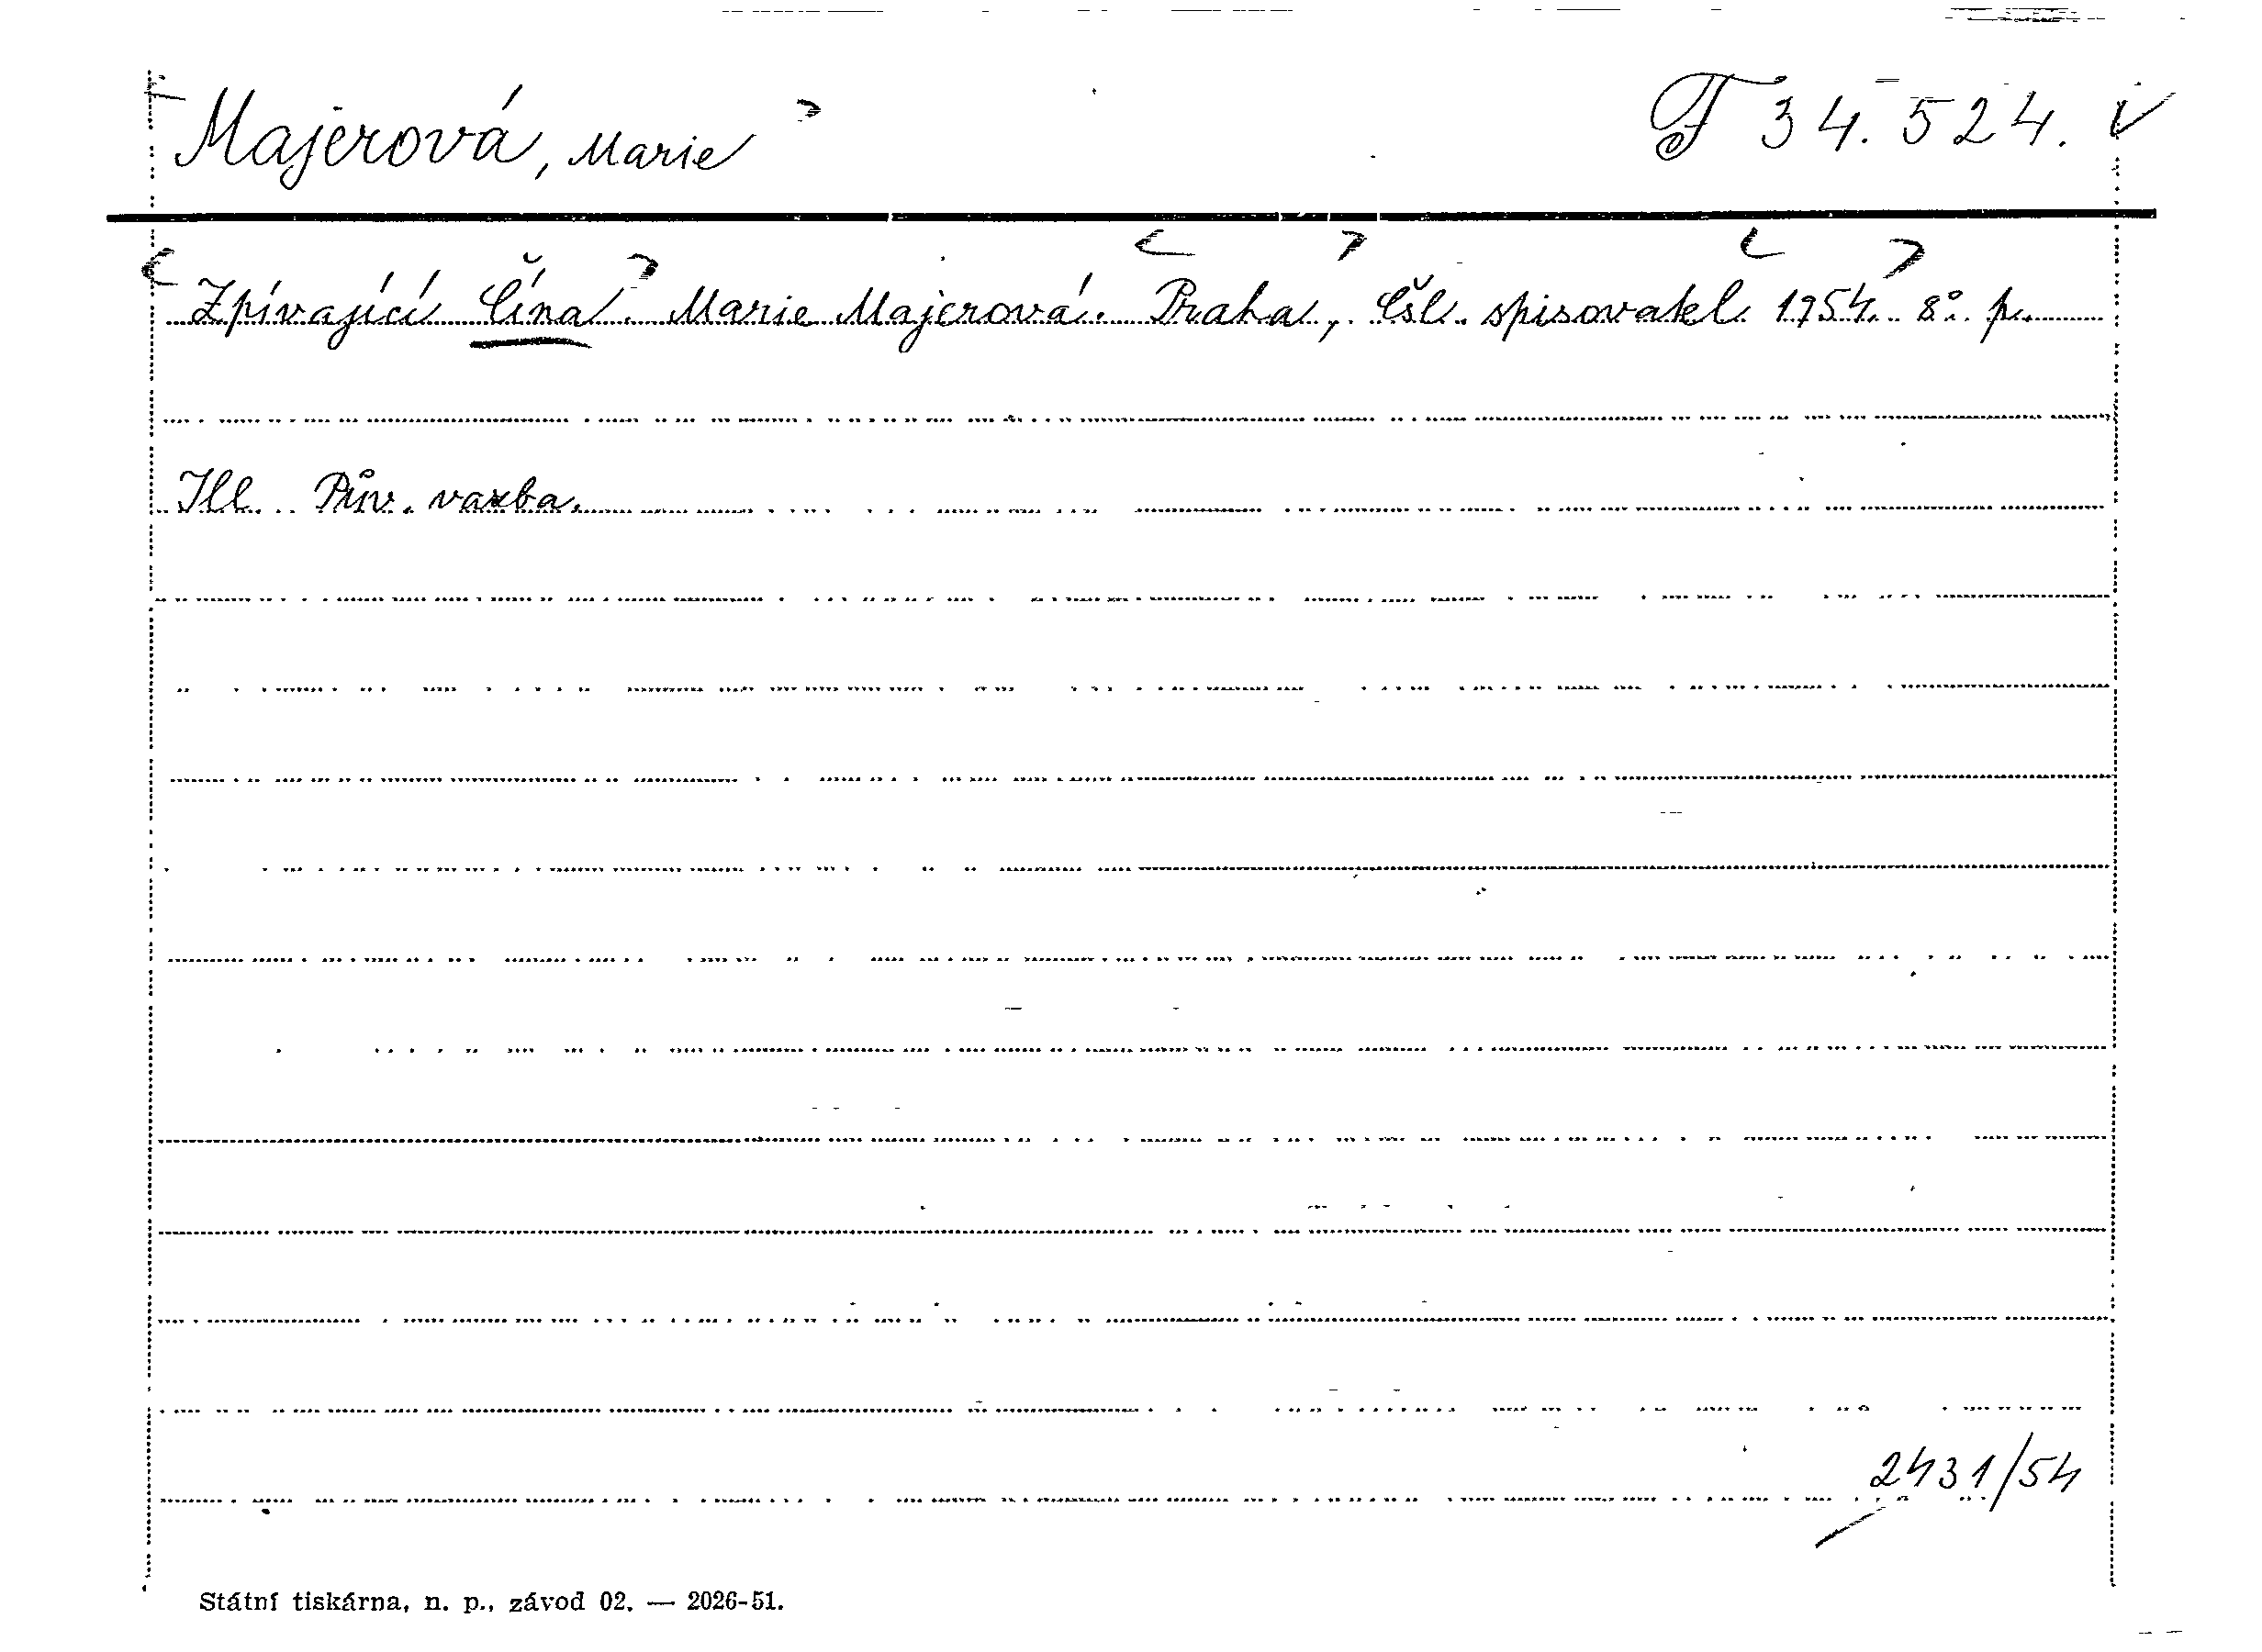 Majerová, Marie F 34.524.
Zpívající Čína. Marie Majerová. Praha, Čsl. spisovatel 1954. 8°. p.
Ill. Pův. vazba.
2431/54
Státní tiskárna, n. p., závod 02. — 2026-51.